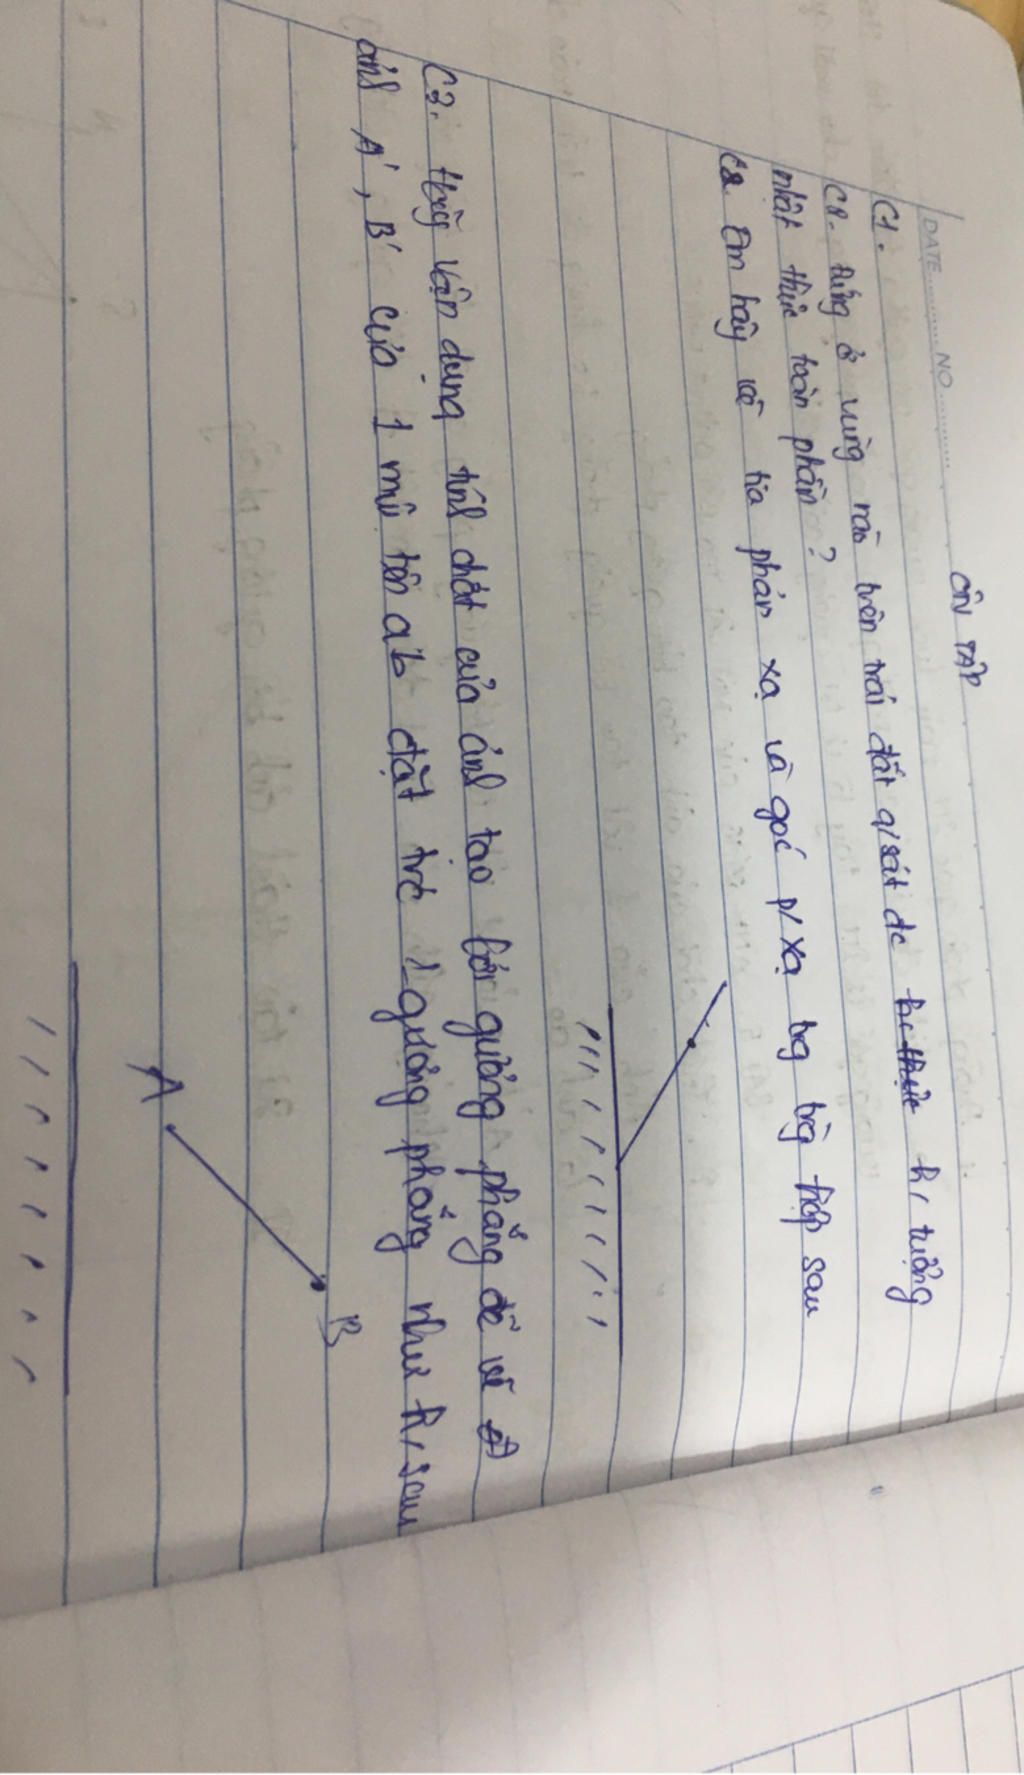 DATE.......... NO..........
ÔN TẬP
C1.
C2. đứng ở vùng nào trên trái đất q/sát đc h/ tượng
nhật thực toàn phần?
C2. Em hãy vẽ tia phản xạ và góc p/xạ tg tg hợp sau
C3. Hãy vận dụng tính chất của ảnh tạo bởi gương phẳng để vẽ
ảnh A', B' của 1 mũi tên ab đặt trc 1 gương phẳng như h, sau
A
B